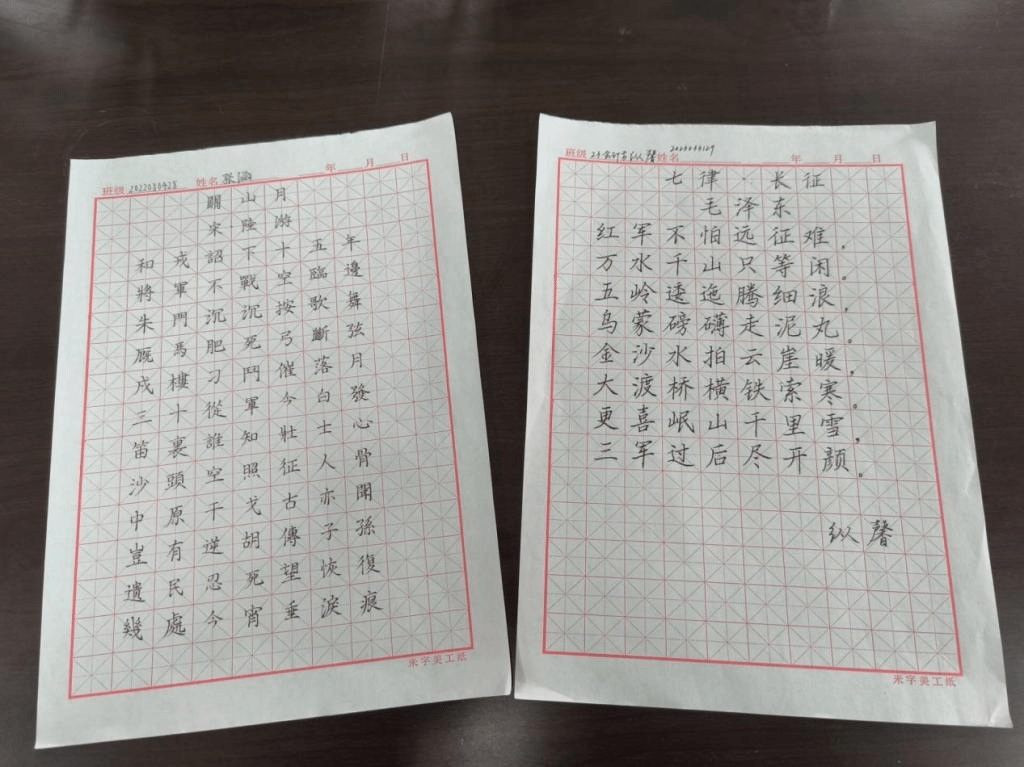 班级 姓名 年 月 日
關山月
宋·陸游
和戎詔下十五年
將軍不戰空臨邊
朱門沉沉按歌舞
厩馬肥死弓斷弦
戍樓刁鬥催落月
三十從軍今白發
笛裏誰知壯士心
沙頭空照征人骨
中原干戈古亦聞
豈有逆胡傳子孫
遺民忍死望恢復
幾處今宵垂淚痕
米字美工纸
班级 纵馨 姓名 年 月 日
七律·长征
毛泽东
红军不怕远征难，
万水千山只等闲。
五岭逶迤腾细浪，
乌蒙磅礴走泥丸。
金沙水拍云崖暖，
大渡桥横铁索寒。
更喜岷山千里雪，
三军过后尽开颜。
纵馨
米字美工纸